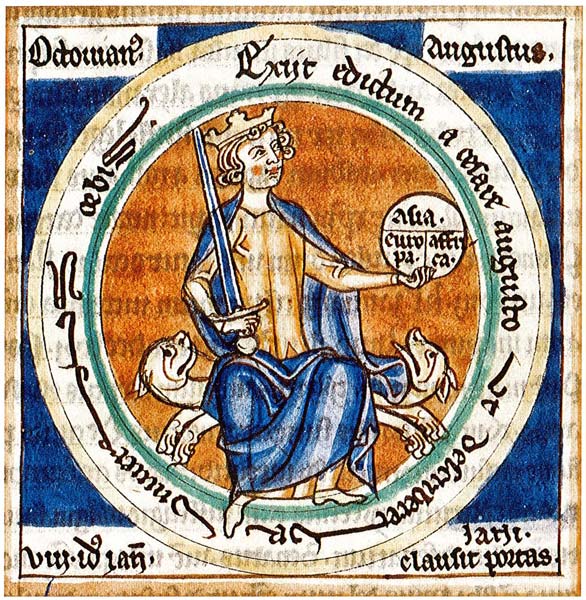 Octouian⁹
Augustus.
Exijt edictum a cesare augusto ut describeret
Asia.
euro affri
pa. ca.
viij. id⁹ iañ.
iani.
clausit portas.